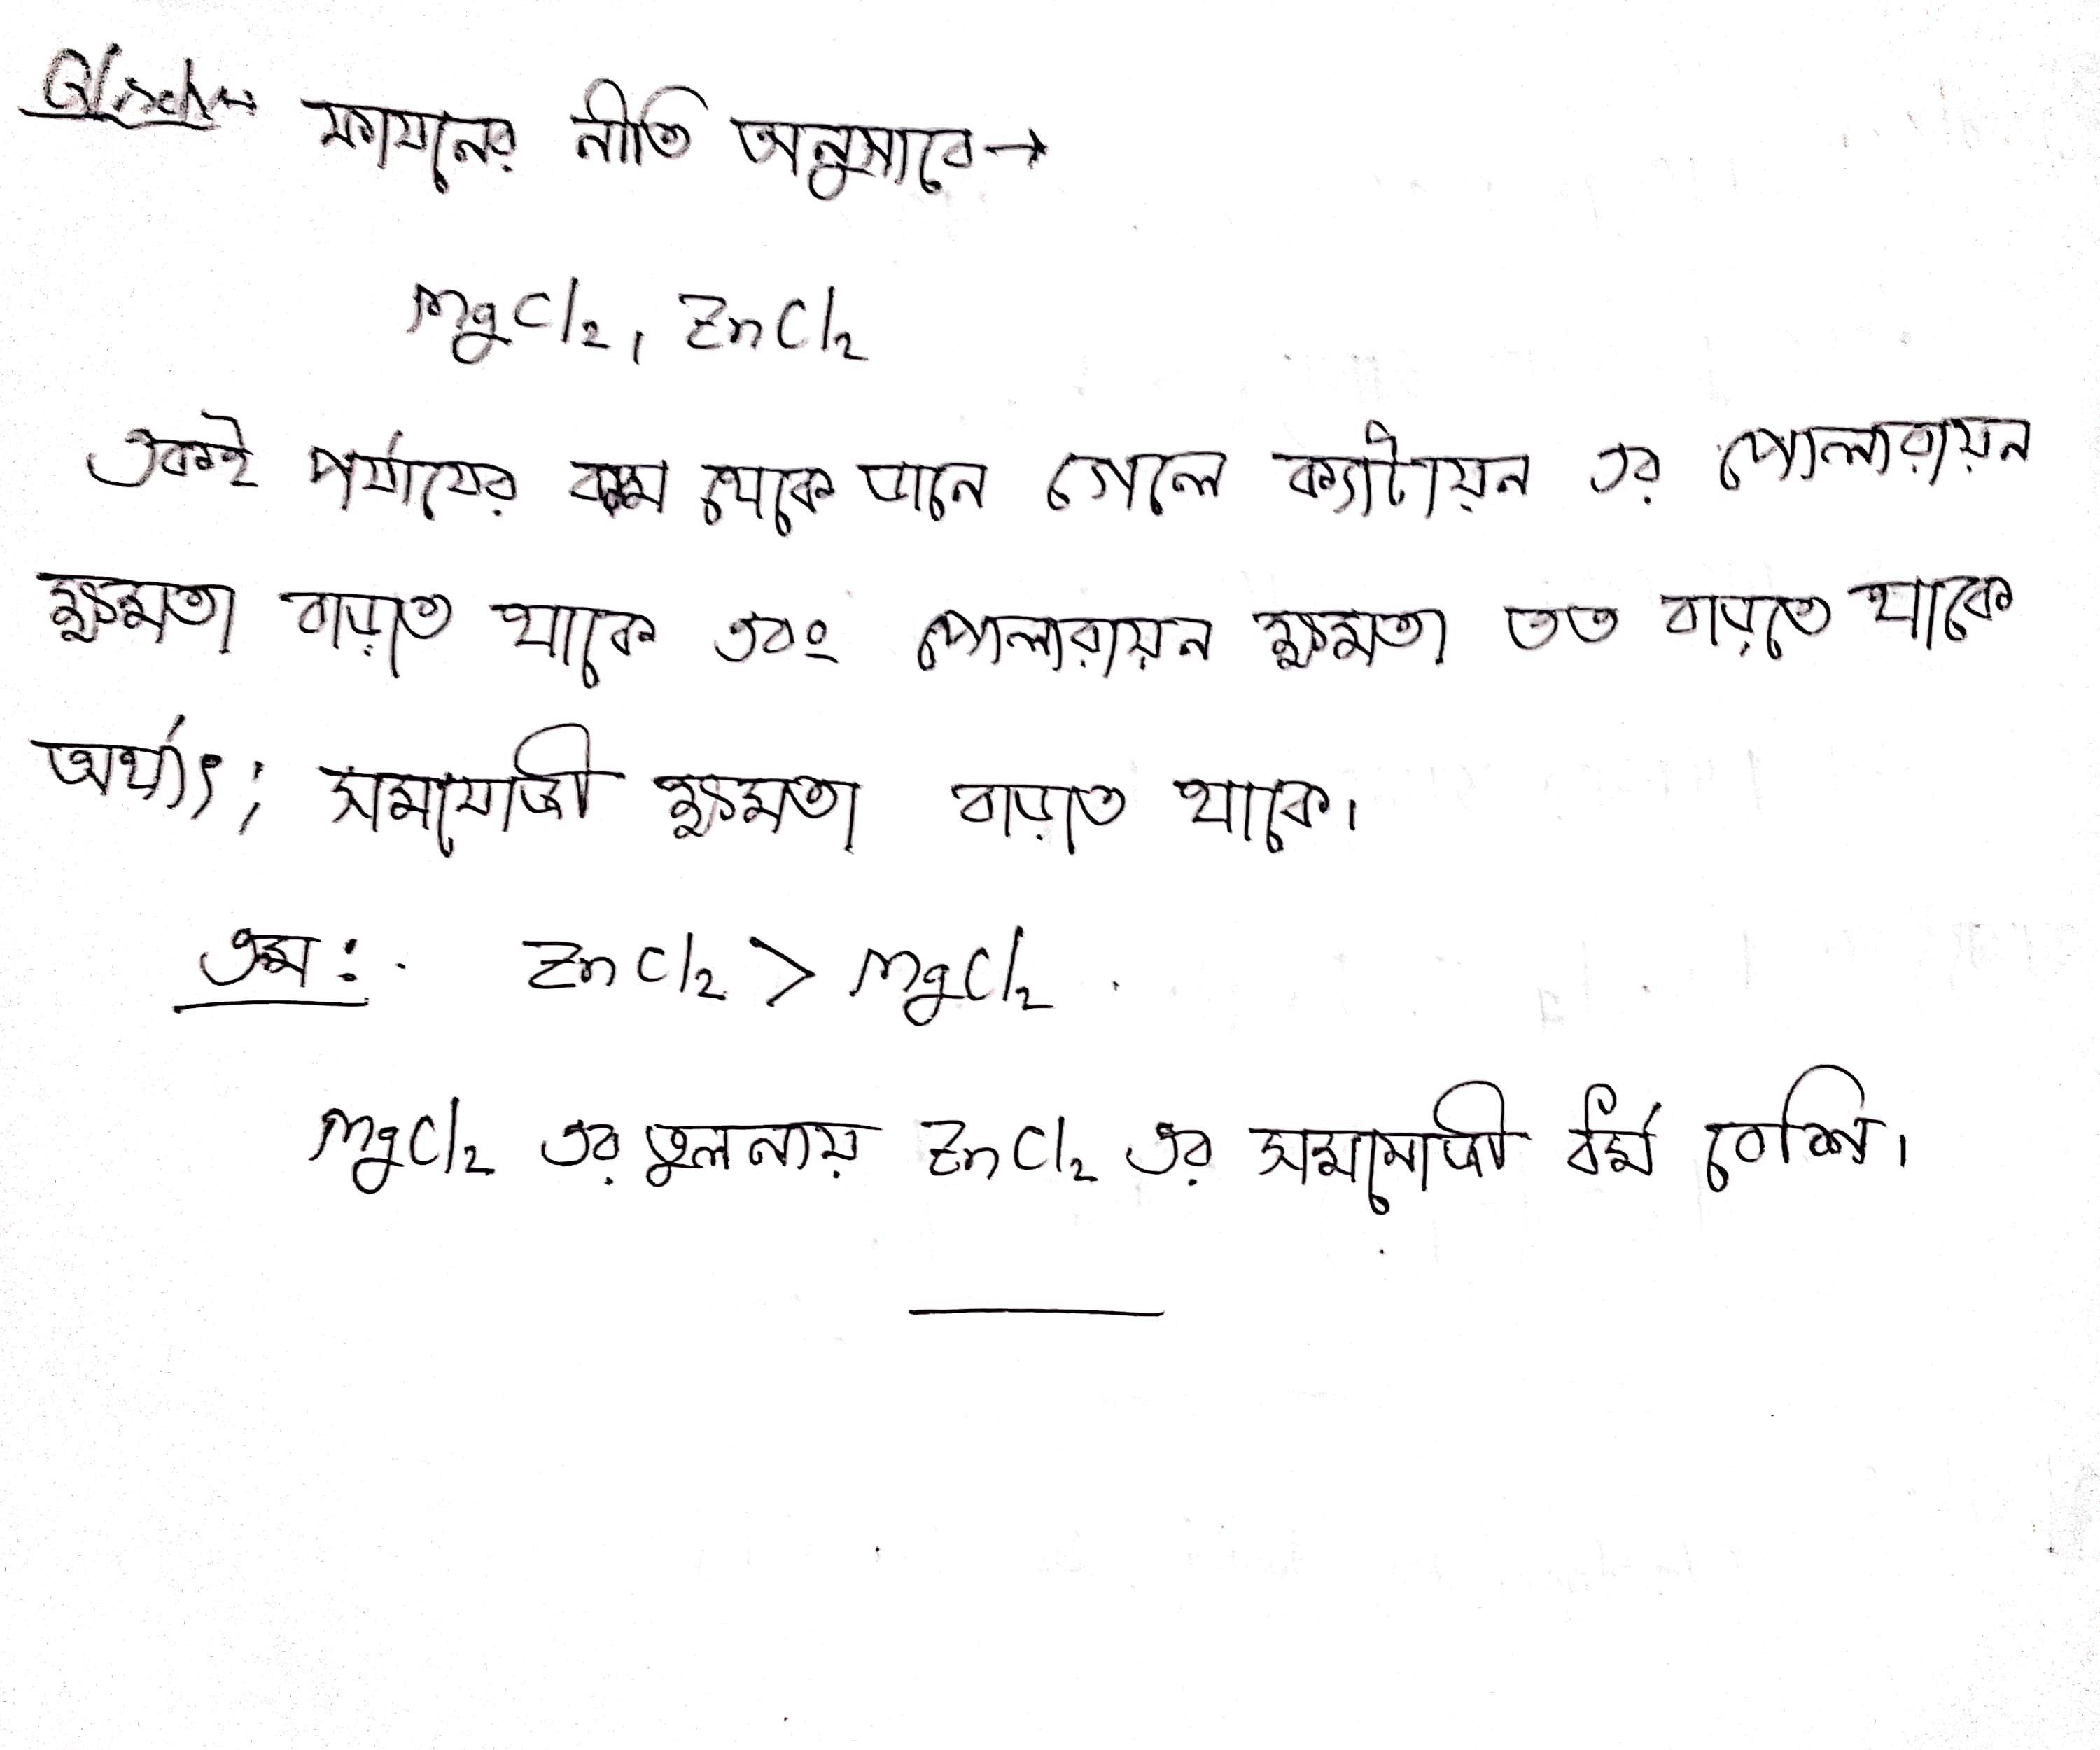 ফাযানের নীতি অনুসারে→
MgCl₂, ZnCl₂
একই পর্যায়ের বাম থেকে ডানে গেলে ক্যাটায়ন এর পোলারায়ন
ক্ষমতা বাড়তে থাকে এবং পোলারায়ন ক্ষমতা তত বাড়তে থাকে
অর্থাৎ; সমযোজী ক্ষমতা বাড়তে থাকে।
ক্রম: ZnCl₂ > MgCl₂
MgCl₂ এর তুলনায় ZnCl₂ এর সমযোজী ধর্ম বেশি।